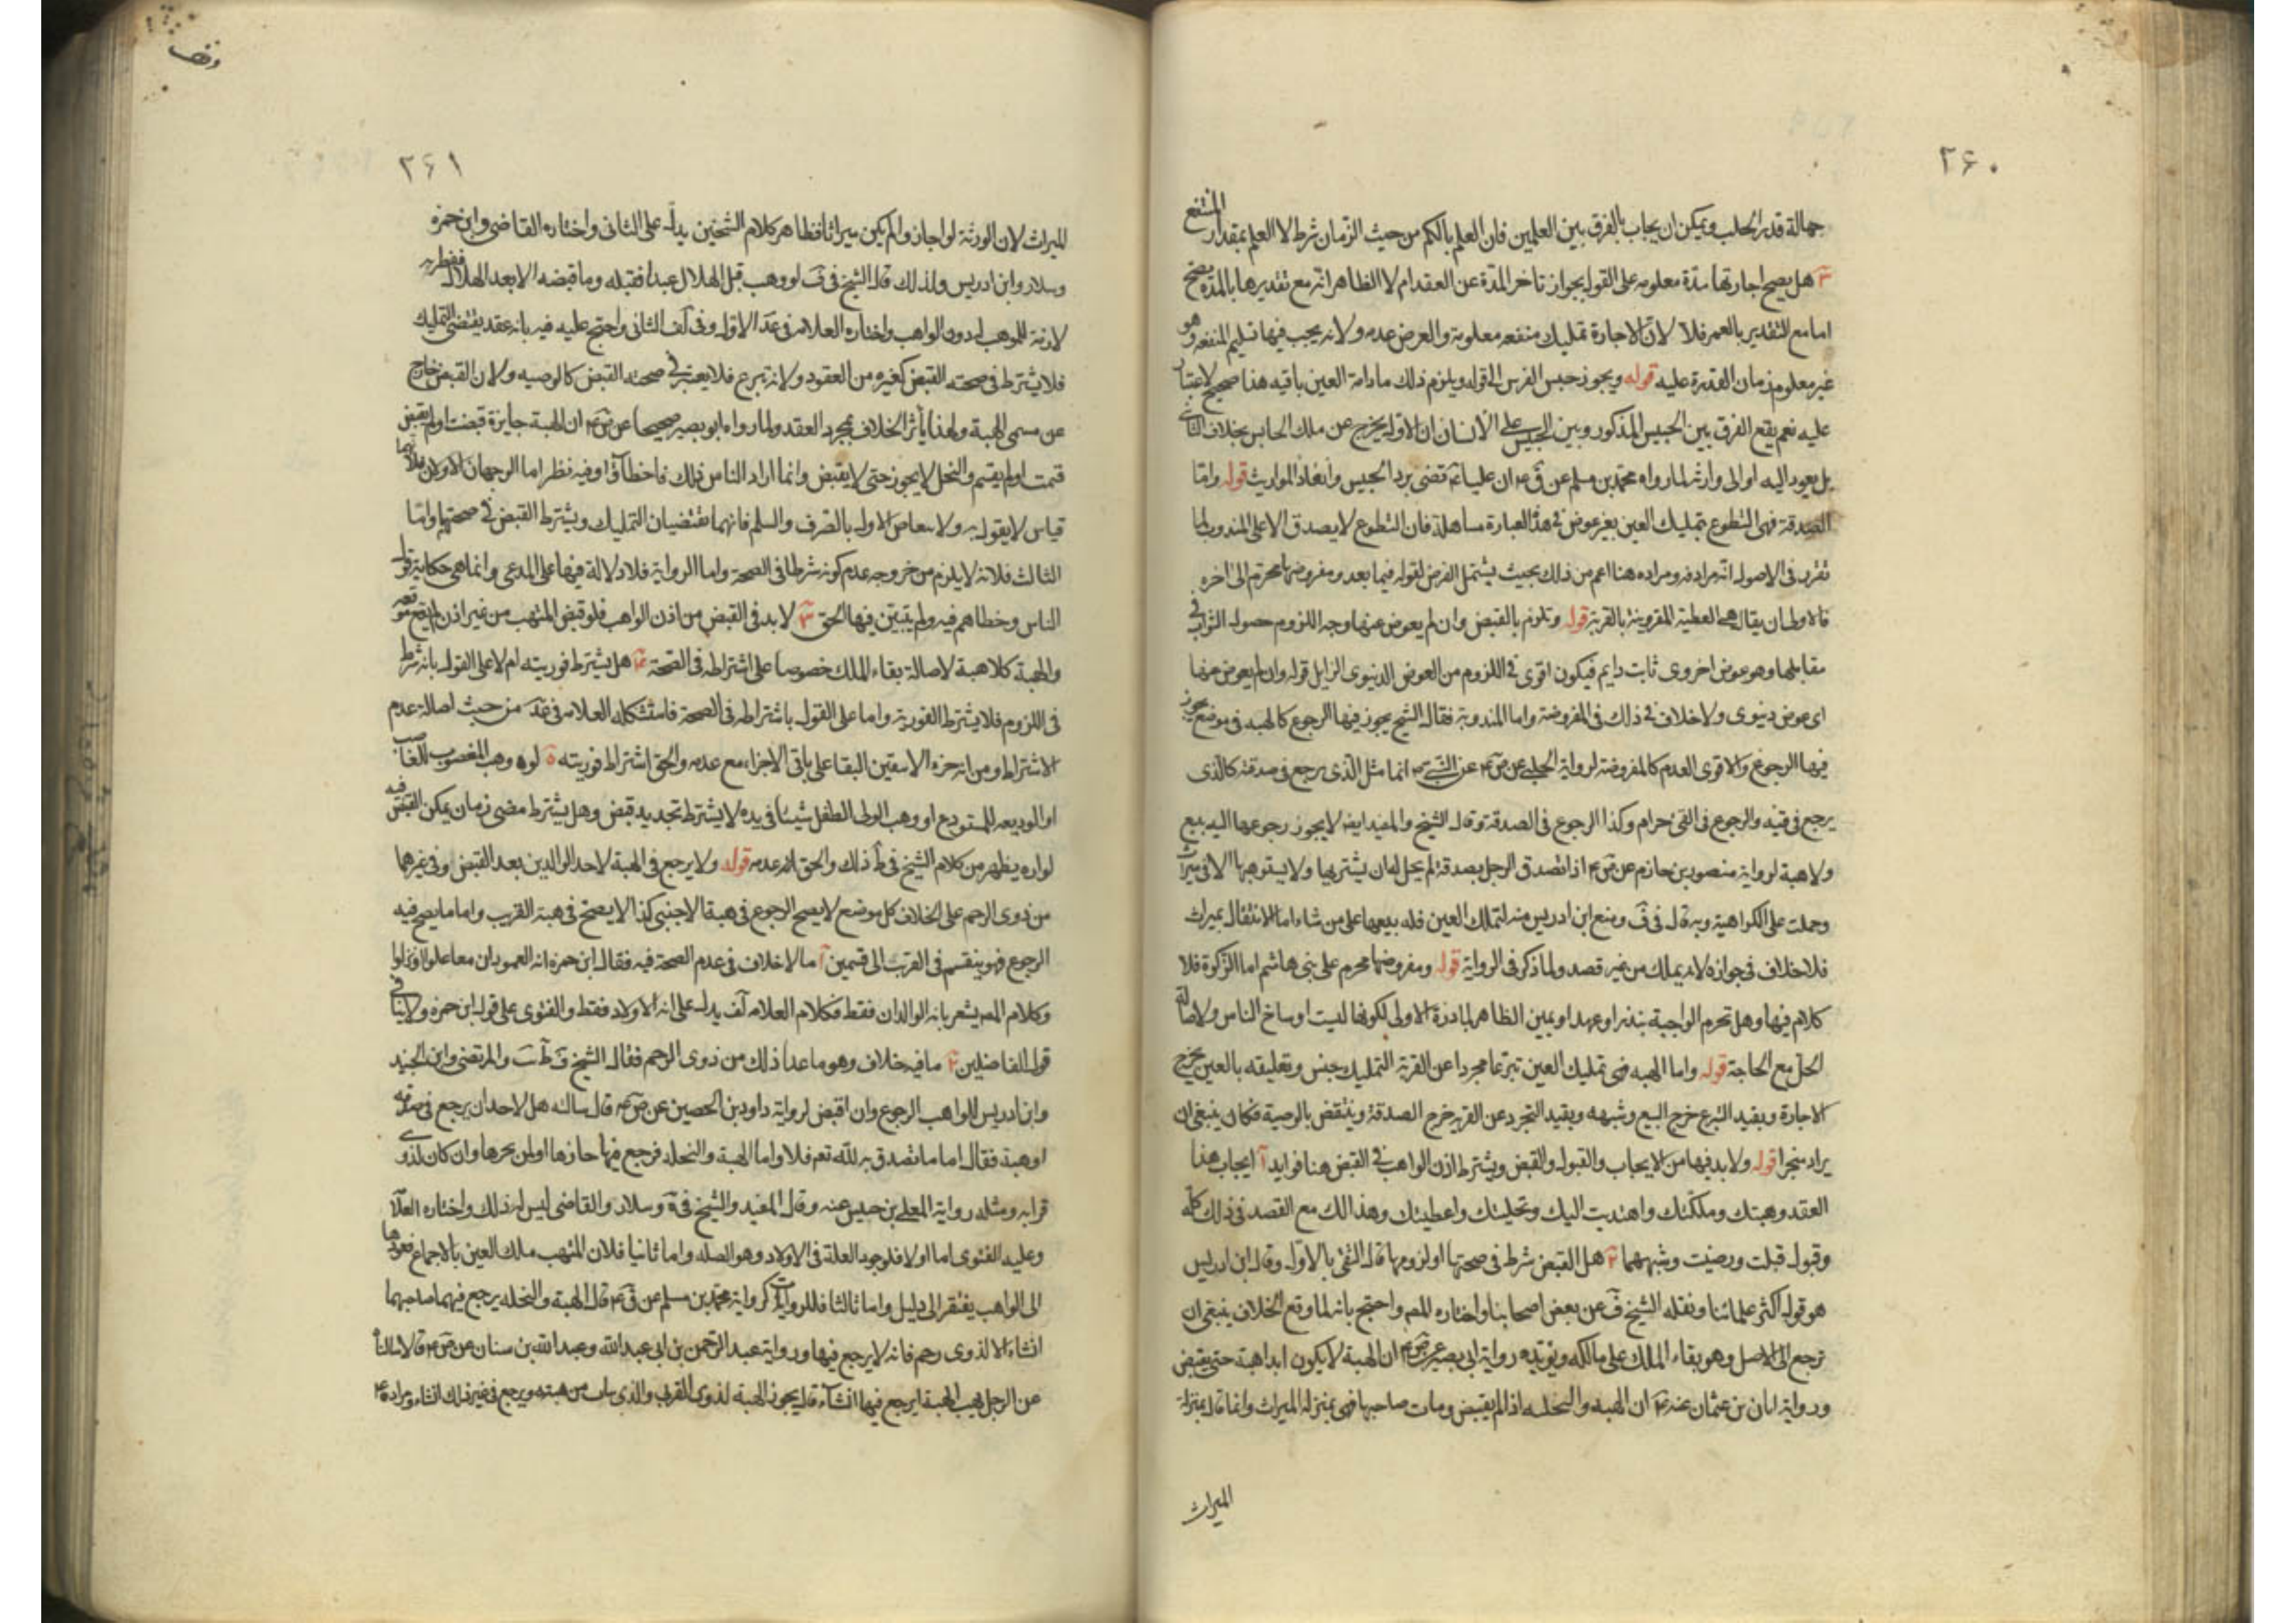 ٢۶٠
جهالة قدر الحلب ويمكن ان يجاب بالفرق بين العلمين فان العلم بالكم من حيث الزمان شرط لا العلم بمقدار المنتفع
٣ هل يصح اجارتها مدة معلومه على القول بجواز تاخر المدة عن العقد ام لا الظاهر انه مع تقديرها بالمدة يصح
اما مع التقدير بالعمر فلا لان الاجارة تمليك منفعه معلومة والعرض عدمه ولانه يجب فيها تسليم المنفعه وهو
غير معلوم زمان القدرة عليه قوله ويجوز حبس الفرس الى قوله ويلزم ذلك مادامة العين باقيه هذا صحيح لا غبار
عليه نعم يقع الفرق بين الحبيس المذكور وبين الحبيس على الانسان ان الاول يخرج عن ملك الحابس بخلاف الثاني
بل يعود اليه او الى وارثه لما رواه محمد بن مسلم عن ق ع ان عليا ع قضى برد الحبيس وانفاذ المواريث قوله واما
الصدقة فهى التطوع بتمليك العين بغير عوض فى هذه العبارة مساهلة فان التطوع لا يصدق الا على المندوب لما
تقرر فى الاصول انه مرادفه ومراده هنا اعم من ذلك بحيث يشتمل الفرض لقوله فيما بعد ومفروضها محرم الى اخره
فالاولى ان يقال هى العطية المقرونة بالقربة قوله وتلزم بالقبض وان لم يعوض عنها وجه اللزوم حصول الثواب فى
مقابلها وهو عوض اخروى ثابت دايم فيكون اقوى فى اللزوم من العوض الدنيوى الزايل قوله وان لم يعوض عنها
اى عوض دنيوى ولا خلاف فى ذلك فى المفروضة واما المندوبة فقال الشيخ يجوز فيها الرجوع كالهبه فى موضع يجوز
فيها الرجوع والاقوى العدم كالمفروضة لرواية الحلبى عن ص ع عن النبى ص انما مثل الذى يرجع فى صدقته كالذى
يرجع فى قيئه والرجوع فى القئ حرام وكذا الرجوع فى الصدقة وقال الشيخ والمفيد ايضا لا يجوز رجوعها اليه ببيع
ولا هبة لرواية منصور بن حازم عن ص ع اذا تصدق الرجل بصدقة لم يحل له ان يشتريها ولا يستوهبها الا فى ميراث
وحملت على الكراهية وبه قال فى ف ومنع ابن ادريس منه لتملك العين فله بيعها على من شاء اما الانتقال بميراث
فلا خلاف فى جوازه لانه يملك من غير قصد ولما ذكر فى الرواية قوله ومفروضها محرم على بنى هاشم اما الزكوة فلا
كلام فيها وهل تحرم الواجبة بنذر او عهد او يمين الظاهر لكونها ليست اوساخ الناس ولاصالة
الحل مع الحاجة قوله واما الهبه فهى تمليك العين تبرعا مجردا عن القربة التمليك جنس وتعليقه بالعين يخرج
الاجارة وبقيد التبرع خرج البيع وشبهه وبقيد التجرد عن القربه خرج الصدقة وينتقض بالوصية فكان ينبغى ان
يزاد منجزا قوله ولا بد فيها من الايجاب والقبول والقبض ويشترط اذن الواهب فى القبض هنا فوايد آ ايجاب هذا
العقد وهبتك وملكتك واهديت اليك ونحلتك واعطيتك وهذا لك مع القصد فى ذلك كله
وقبول قبلت ورضيت وشبههما ٢ هل القبض شرط فى صحتها او لزومها قال التقى بالاول وقال ابن ادريس
هو قول اكثر علمائنا ونقله الشيخ ف عن بعض اصحابنا واختاره المص واحتج بانه لما وقع الخلاف ينبغى ان
نرجع الى الاصل وهو بقاء الملك على مالكه ويؤيده رواية ابى بصير عن ص ع ان الهبة لا يكون ابدا هبة حتى يقبض
ورواية ابان بن عثمان عنه ع ان الهبه والنحله اذا لم يقبض ومات صاحبها فهى بمنزله الميراث وانما قال بمنزلة
الميراث
وقف
٢۶١
الميراث لان الورثة لو اجازوا لم يكن ميراثا فظاهر كلام الشيخين يدل على الثانى واختاره القاضى وابن حمزه
وسلار وابن ادريس ولذلك قال الشيخ فى ف لو وهب قبل الهلال عبدا فقبله وما قبضه الا بعد الهلال ففطرته
لازمة للموهب له دون الواهب واختاره العلامه فى عد الاول وفى لف الثانى واحتج عليه فيه بانه عقد يقتضى التمليك
فلا يشترط فى صحته القبض كغيره من العقود ولانه تبرع فلا يعتبر فى صحته القبض كالوصيه ولان القبض خارج
عن مسمى الهبة ولهذا يأثر الخلاف بمجرد العقد ولما رواه ابو بصير صحيحا عن ص ع ان الهبة جايزة قبضت او لم يقبض
قسمت او لم يقسم والنحل لا يجوز حتى لا يقبض وانما اراد الناس ذلك فاخطأوا وفيه نظر اما الوجهان الاولان فلانهما
قياس لا يقول به ولا الاول بالصرف والسلم فانهما يقتضيان التمليك ويشترط القبض فى صحتهما واما
الثالث فلانه لا يلزم من خروجه عدم كونه شرطا فى الصحة واما الرواية فلا دلالة فيها على المدعى وانما هى حكاية قول
الناس وخطاهم فيه ولم يتبين فيها الحق ٣ لا بد فى القبض من اذن الواهب فلو قبض المتهب من غير اذن لم يقع موقعه
والهبة كلا هبة لاصالة بقاء الملك خصوصا على اشتراطه فى الصحة ٤ هل يشترط فوريته ام لا على القول بانه شرط
فى اللزوم فلا يشترط الفورية واما على القول باشتراطه فى الصحة فاستشكله العلامه فى عد من حيث اصالة عدم
الاشتراط ومن انه على باقى الاجزاء مع عدمه والحق اشتراط فوريته ٥ لو وهب المغصوب للغاصب
او الوديعه للمستودع او وهب الولى الطفل شيئا فى يده لا يشترط تجديد قبض وهل يشترط مضى زمان يمكن القبض فيه
يظهر من كلام الشيخ فى ط ذلك والحق عدمه قوله ولا يرجع فى الهبة لاحد الوالدين بعد القبض وفى غيرهما
من ذوى الرحم على الخلاف كل موضع لا يصح الرجوع فى هبة الاجنبى كذا لا يصح فى هبة القريب واما ما يصح فيه
الرجوع فهو ينقسم فى القرب الى قسمين آ ما لا خلاف فى عدم الصحة فيه فقال ابن حمزه انه العمودان معا علوا او نزلوا
وكلام المص يشعر بانه الوالدان فقط فكلام العلامه لف يدل على انه الاولاد فقط والفتوى على قول ابن حمزه ولا ينافى
قول الفاضلين ٢ ما فيه خلاف وهو ما عدا ذلك من ذوى الرحم فقال الشيخ والمرتضى وابن الجنيد
وابن ادريس للواهب الرجوع وان اقبض لرواية داود بن الحصين عن ص ع قال سالته هل لاحد ان يرجع فى صدقة
او هبة فقال اما ما تصدق به لله تع فلا واما الهبة والنحله فرجع فيها حازها او لم يحزها وان كان لذوى
قرابه ومثله رواية المعلى بن خنيس عنه وقال المفيد والشيخ فى وسلار والقاضى ليس له ذلك واختاره العلا
وعليه الفتوى اما اولا فلوجود العلة فى الاولاد وهو الصله واما ثانيا فلان المتهب ملك العين بالاجماع فعودها
الى الواهب يفتقر الى دليل واما ثالثا فللروايات كرواية محمد بن مسلم عن ق ع قال الهبة والنحله يرجع فيهما صاحبهما
ان شاء الا لذوى رحم فانه لا يرجع فيها ورواية عبد الرحمن بن ابى عبدالله وعبدالله بن سنان عن ص ع قالا سالناه
عن الرجل يهب الهبة ايرجع فيها ان شاء قال يجوز الهبة لذوى القرابه والذى يثاب من هبته ويرجع فى غير ذلك ان شاء